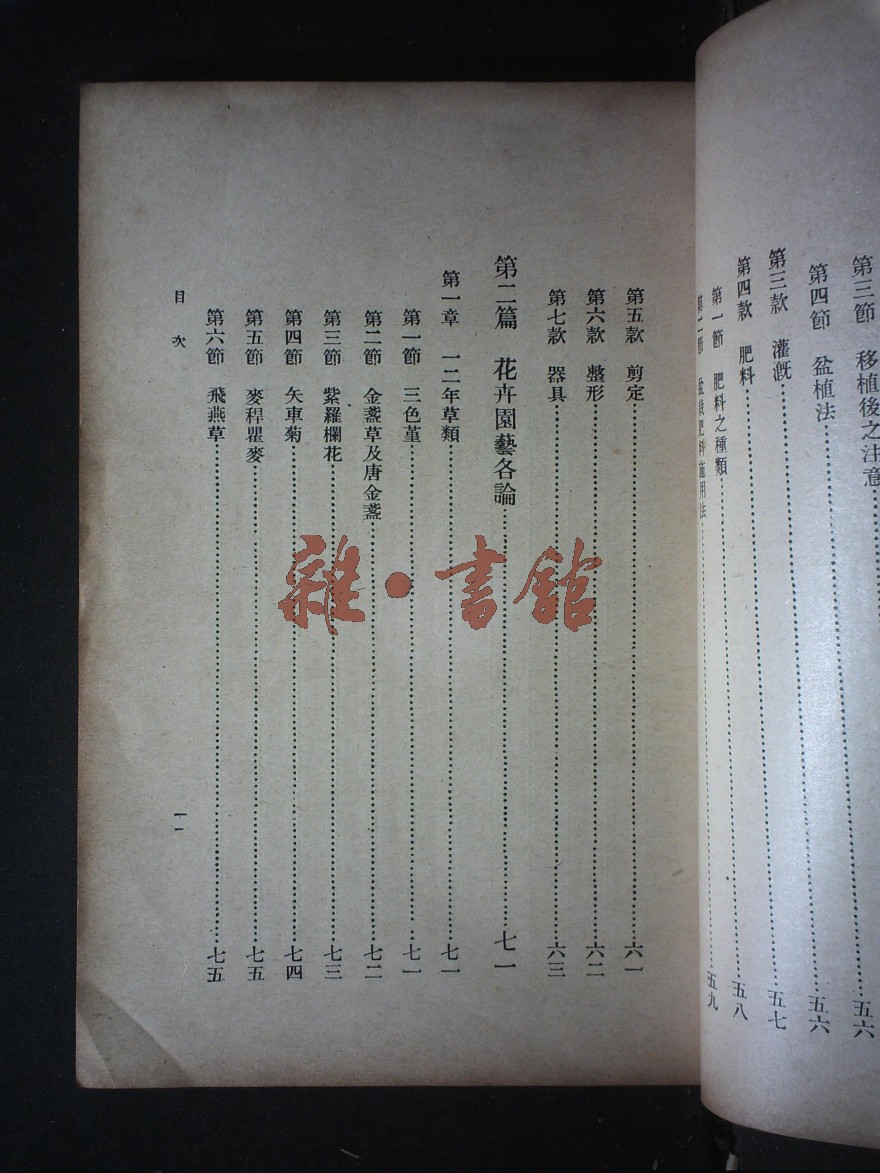 第三節　移植後之注意……五六
第四節　盆植法……五六
第三款　灌漑……五七
第四款　肥料……五八
第一節　肥料之種類
第二節　盆栽肥料施用法……五九
第五款　剪定……六一
第六款　整形……六二
第七款　器具……六三
第二篇　花卉園藝各論……七一
第一章　一二年草類……七一
第一節　三色堇……七一
第二節　金盞草及唐金盞……七二
第三節　紫羅欄花……七三
第四節　矢車菊……七四
第五節　麥稈瞿麥……七五
第六節　飛燕草……七五
目次　一一
雜·書館